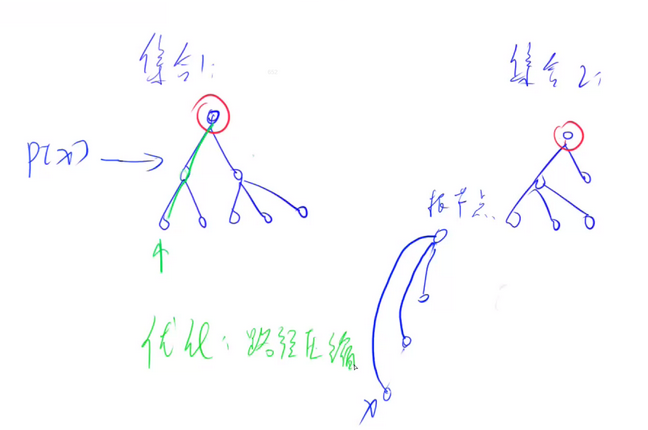 集合1:
集合2:
p(x)
根节点
优化:路径压缩
x